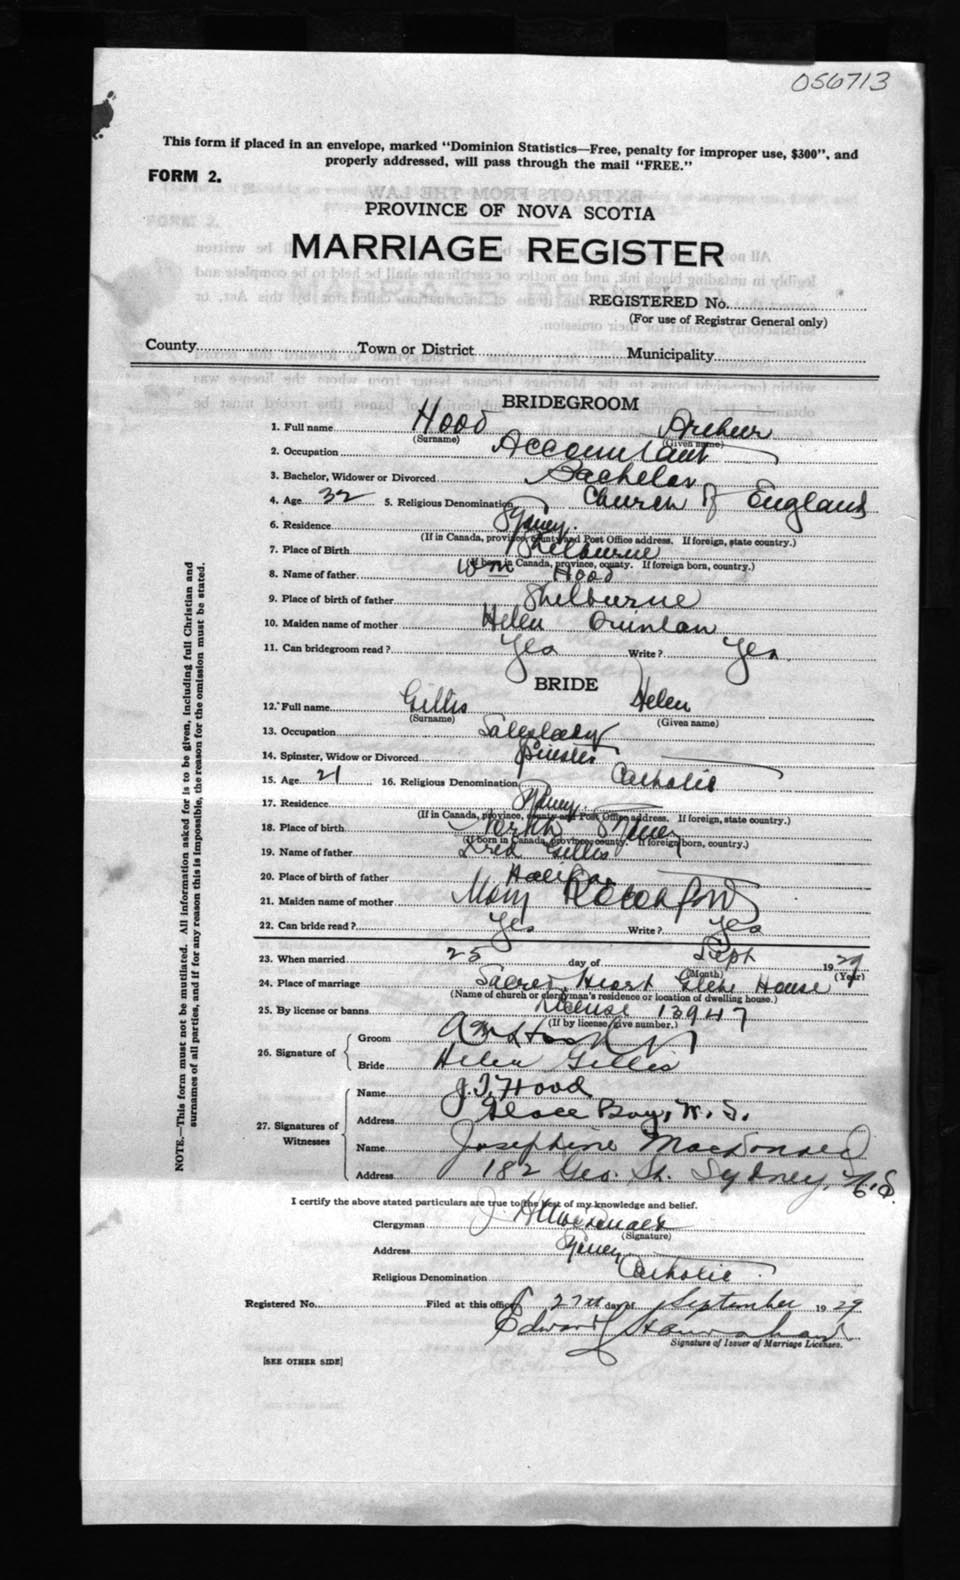 056713
This form if placed in an envelope, marked "Dominion Statistics—Free, penalty for improper use, $300", and
properly addressed, will pass through the mail "FREE."
FORM 2.
PROVINCE OF NOVA SCOTIA
MARRIAGE REGISTER
REGISTERED No.
(For use of Registrar General only)
County Town or District Municipality
BRIDEGROOM
1. Full name Hood Arthur
(Surname) (Given name)
2. Occupation Accountant
3. Bachelor, Widower or Divorced Bachelor
4. Age 32 5. Religious Denomination Church of England
6. Residence Sydney.
(If in Canada, province, county and Post Office address. If foreign, state country.)
7. Place of Birth Shelburne
(If born in Canada, province, county. If foreign born, country.)
8. Name of father Wm Hood
9. Place of birth of father Shelburne
10. Maiden name of mother Helen Quinlan
11. Can bridegroom read? Yes Write? Yes.
BRIDE
12. Full name Gillis Helen
(Surname) (Given name)
13. Occupation Saleslady
14. Spinster, Widow or Divorced Spinster
15. Age 21 16. Religious Denomination Catholic
17. Residence Sydney.
(If in Canada, province, county and Post Office address. If foreign, state country.)
18. Place of birth North Sydney
(If born in Canada, province, county. If foreign born, country.)
19. Name of father Fred Gillis
20. Place of birth of father Halifax
21. Maiden name of mother Mary
22. Can bride read? Yes Write? Yes
23. When married 25 day of Sept 1929
(Month) (Year)
24. Place of marriage Sacred Heart Glebe House
(Name of church or clergyman's residence or location of dwelling house.)
25. By license or banns License 13947
(If by license give number.)
26. Signature of Groom Hood
Bride Helen Gillis
27. Signatures of Witnesses
Name J. T. Hood
Address Glace Bay, N. S.
Name Josephine MacDonald
Address 182 Geo. St. Sydney, N.S.
I certify the above stated particulars are true to the best of my knowledge and belief.
Clergyman J. H. MacDonald
(Signature)
Address Sydney
Religious Denomination Catholic
Registered No. Filed at this office 27th day of September 1929
Edward Hanrahan
Signature of Issuer of Marriage Licenses.
[SEE OTHER SIDE]
NOTE.—This form must not be mutilated. All information asked for is to be given, including full Christian and
surnames of all parties, and if for any reason this is impossible, the reason for the omission must be stated.